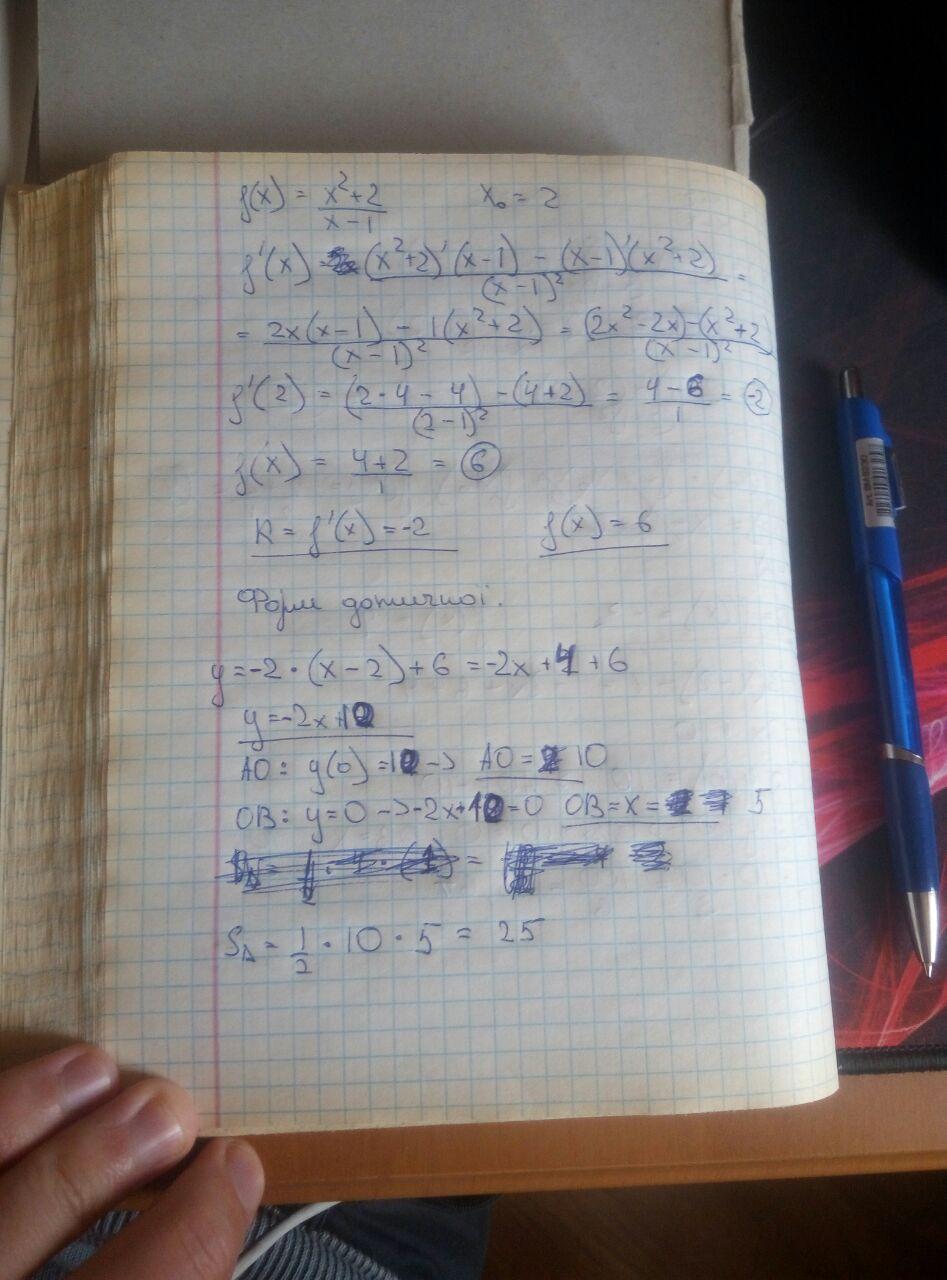 f(x) = \frac{x²+2}{x-1} x₀ = 2
f'(x) = \frac{(x²+2)'(x-1) - (x-1)'(x²+2)}{(x-1)²} =
= \frac{2x(x-1) - 1(x²+2)}{(x-1)²} = \frac{(2x²-2x)-(x²+2}{(x-1)²}
f'(2) = \frac{(2·4-4)-(4+2)}{(2-1)²} = \frac{4-6}{1} = -2
f(x) = \frac{4+2}{1} = 6
K = f'(x) = -2 f(x) = 6
Форм дотичної.
y = -2·(x-2)+6 = -2x+4+6
y = -2x+10
AO: y(0) = 10 -> AO = 10
OB: y = 0 -> -2x+10 = 0 OB = x = 5
S∆ = \frac{1}{2} · 10 · 5 = 25